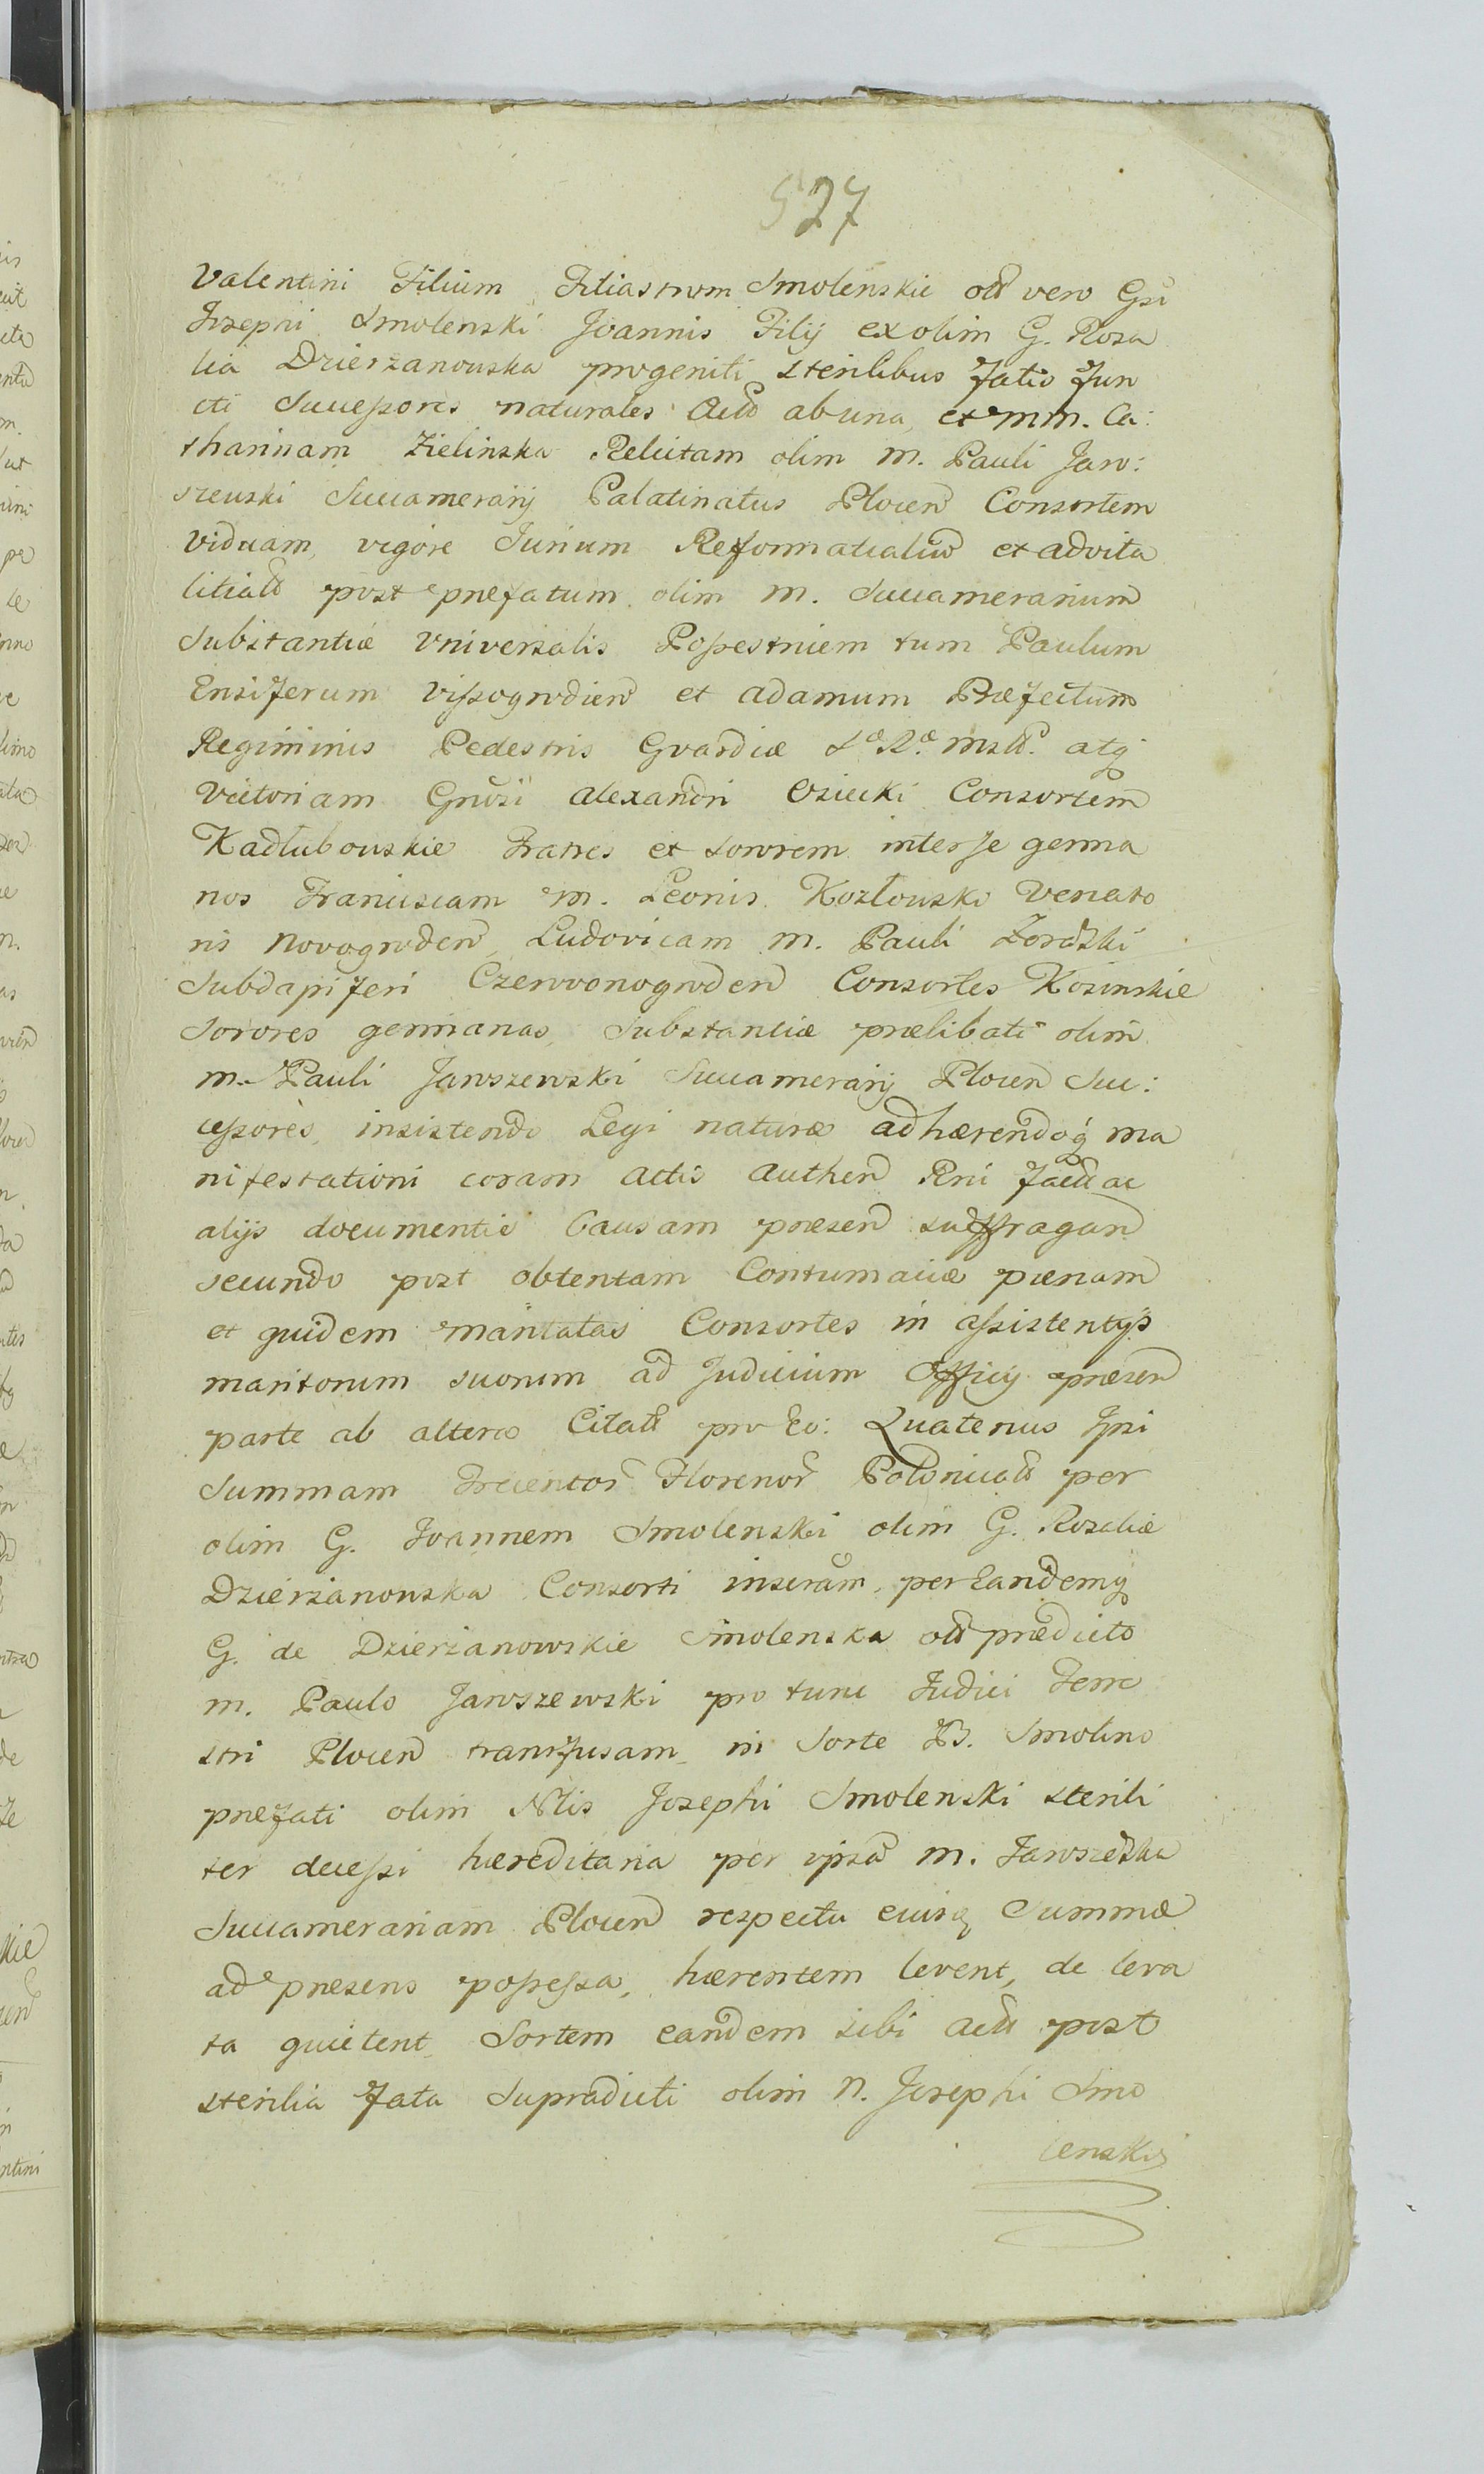 527
Valentini Filium Filiastrum Smolenskie olim vero Gsi
Josephi Smolenski Joannis Filij ex olim G. Rosa
lia Dzierzanowska progeniti sterilibus fatis fun
cti Successores naturales Acto ab una, et mm. Ca:
tharinam Zielinska Relictam olim M. Pauli Jaro:
szewski Succamerarij Palatinatus Plocen Consortem
viduam, vigore Jurium Reformatialium et advita
litialium post præfatum olim M. Succamerarium
Substantiæ Universalis Possestricem tum Paulum
Ensiferum Vissogroden et Adamum Præfectum
Regiminis Pedestris Gvardiæ Sæ Ræ Mstt. atq
Victoriam Grosi Alexandri Osiecki Consortem
Kadłubowskie Fratres et Sororem inter se germa
nos Franciscam M. Leonis Kozłowski Venato
ris Novogroden Ludovicam M. Pauli Zoraski
Subdapiferi Czerwonogroden Consortes Kosinskie
Sorores germanas, Substantiæ prælibati olim
M. Pauli Jaroszewski Succamerarij Plocen Suc:
cessores, insistendo Legi naturæ adhærendoq ma
nifestationi coram Actis Authen Rni fact ac
alijs documentis Causam præsen suffragan
secundo post obtentam Contumaciæ pænam
et quidem maritatas Consortes in assistentijs
maritorum suorum ad Judicium Officij præsen
parte ab altera Citat pro Eo: Quatenus Ipsi
Summam Trecentor Florenor Polonical per
olim G. Joannem Smolenski olim G. Rosaliæ
Dzierzanowska Consorti inscram, per Eandemq
G. de Dzierzanowskie Smolenska olim prædicto
M. Paulo Jaroszewski pro tunc Judici Terre
stri Plocen transfusam, in Sorte B. Smolino
præfati olim Nlis Josephi Smolenski sterili
ter decessi hæreditaria per ipsam M. Jaroszewska
Succamerariam Plocen respectu cuiusq Summæ
ad præsens possessa, hærentem levent, de leva
ta quietent, Sortem eandem sibi Act post
sterilia fata Supradicti olim N. Josephi Smo
lenski